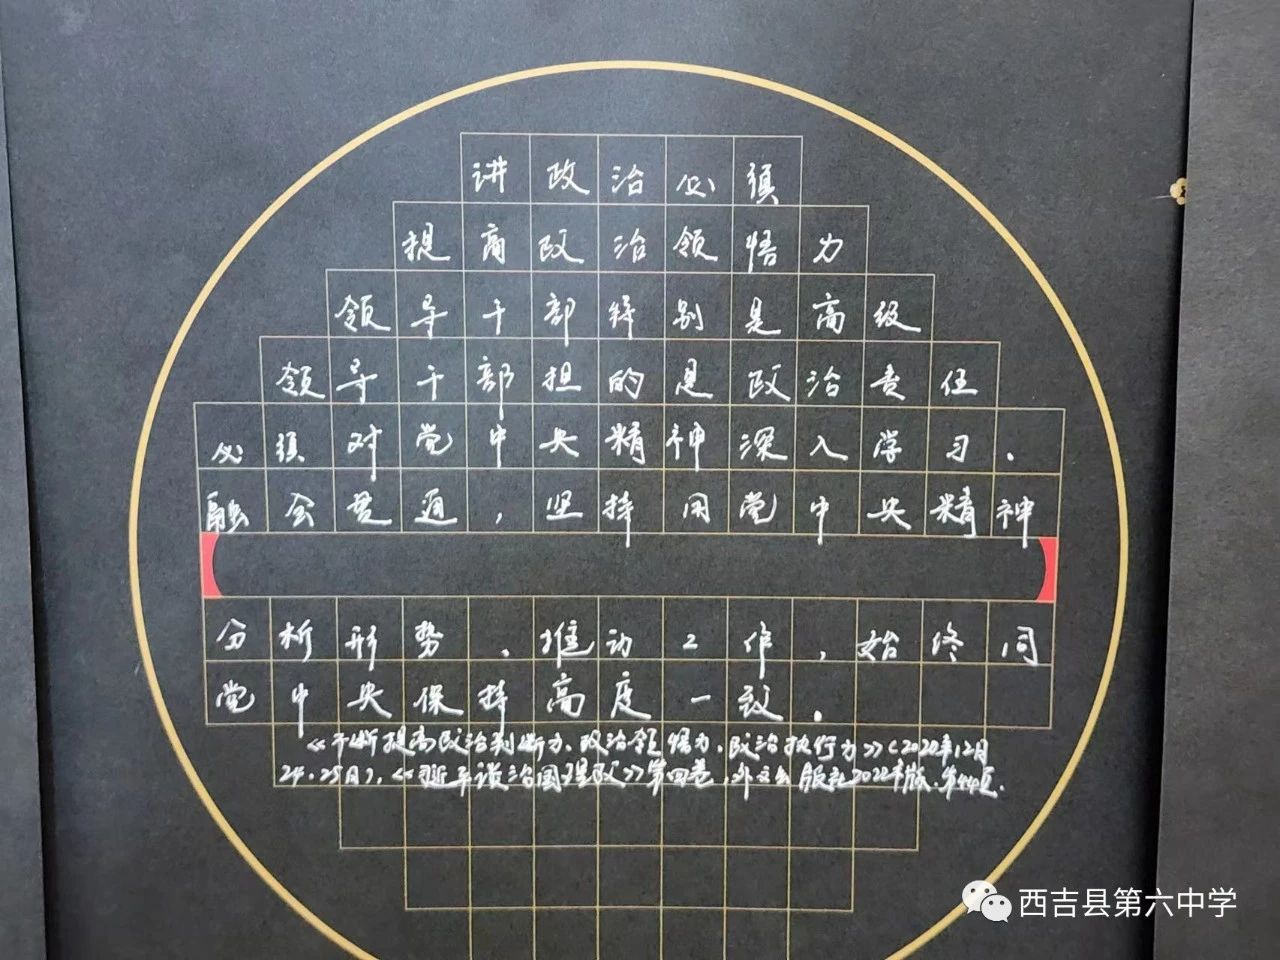 讲政治必须
提高政治领悟力
领导干部特别是高级
领导干部担的是政治责任
必须对党中央精神深入学习、
融会贯通，坚持用党中央精神
分析形势、推动工作，始终同
党中央保持高度一致。
《不断提高政治判断力、政治领悟力、政治执行力》(2020年12月
24、25日)，《习近平谈治国理政》第四卷，外文出版社2022年版，第44页.
西吉县第六中学